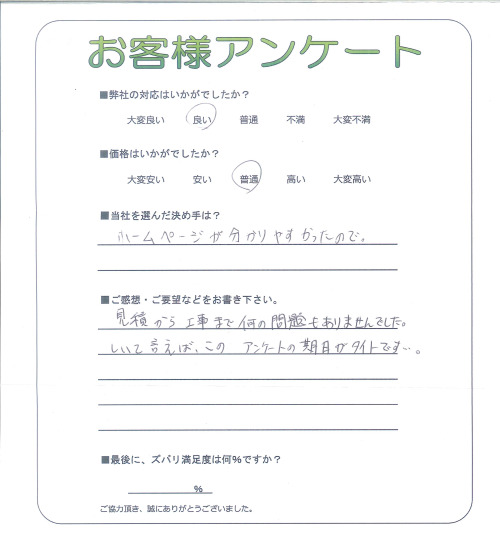 お客様アンケート
■弊社の対応はいかがでしたか？
大変良い 良い 普通 不満 大変不満
■価格はいかがでしたか？
大変安い 安い 普通 高い 大変高い
■当社を選んだ決め手は？
ホームページが分かりやすかったので。
■ご感想・ご要望などをお書き下さい。
見積から工事まで何の問題もありませんでした。
しいて言えば、このアンケートの期日がタイトです…。
■最後に、ズバリ満足度は何%ですか？
%
ご協力頂き、誠にありがとうございました。